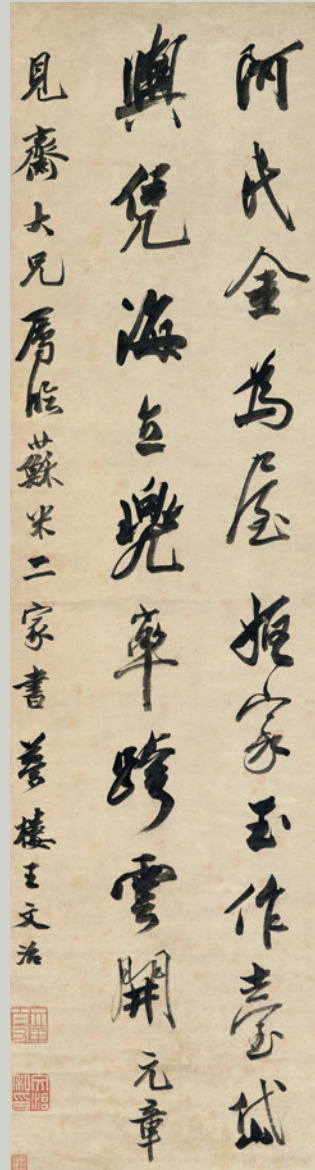 阿氏金為屋姬家玉作臺岱
輿凭海立兜率跨雲開元章
見齋大兄屬臨蘇米二家書夢樓王文治